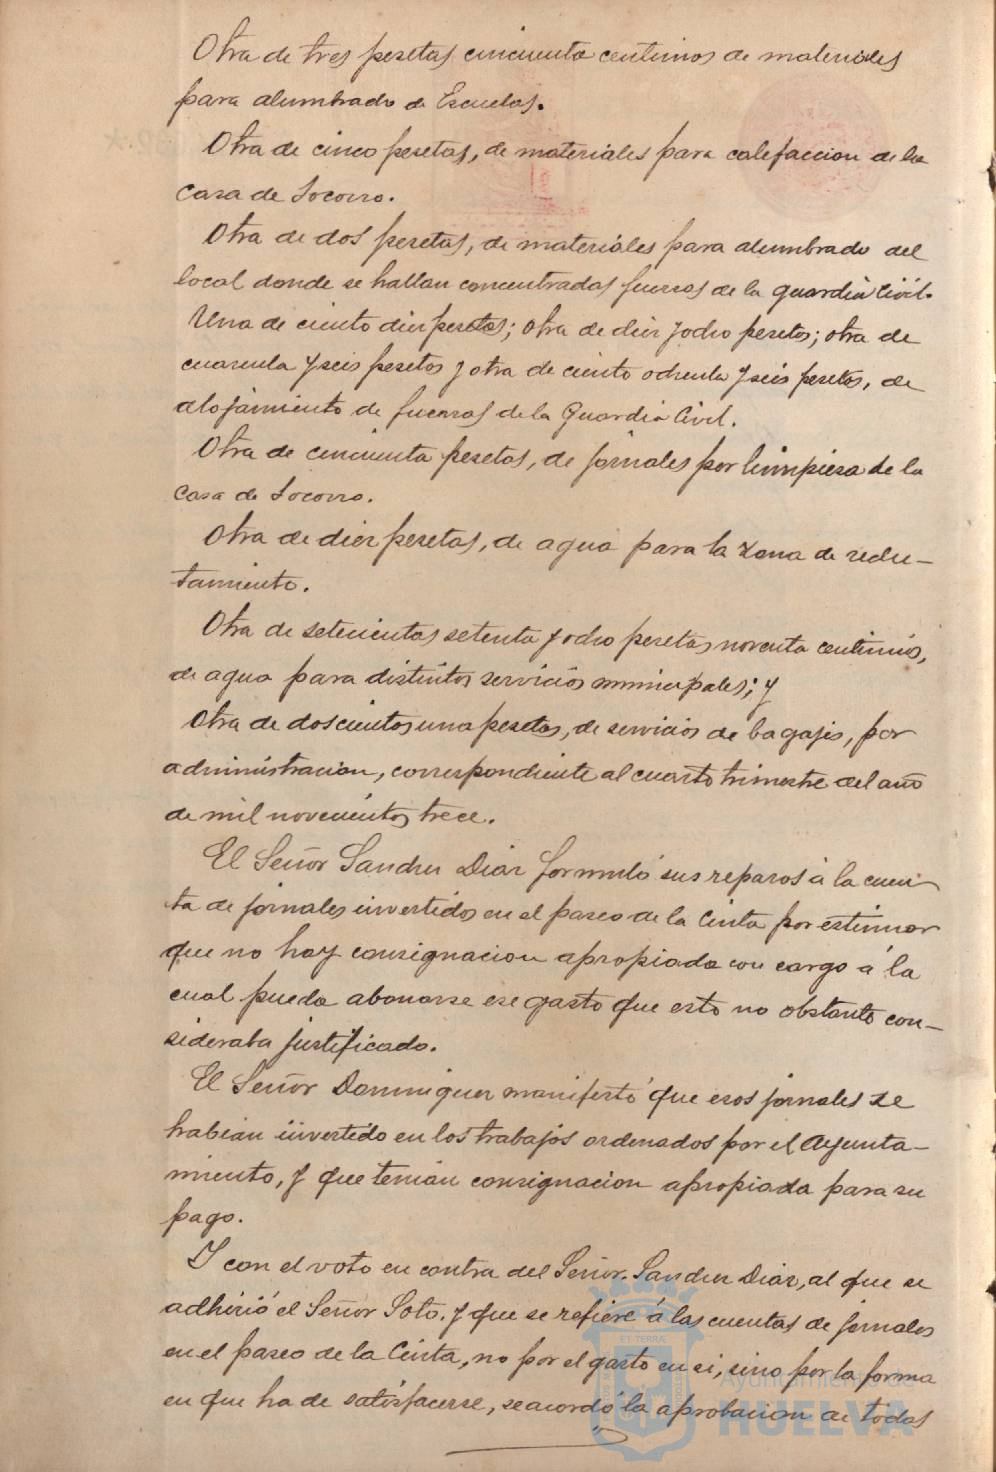 Otra de tres pesetas cincuenta centimos de materiales
para alumbrado de Escuelas.
Otra de cinco pesetas, de materiales para calefaccion de la
Casa de Socorro.
Otra de dos pesetas, de materiales para alumbrado del
local donde se hallan concentradas fuerzas de la guardia Civil.
Una de ciento diez pesetas; otra de diez y ocho pesetas; otra de
cuarenta y seis pesetas y otra de ciento ochenta y seis pesetas, de
alojamiento de fuerzas de la Guardia Civil.
Otra de cincuenta pesetas, de jornales por limpieza de la
Casa de Socorro.
Otra de diez pesetas, de agua para la zona de reclu-
tamiento.
Otra de setecientas setenta y ocho pesetas noventa centimos,
de agua para distintos servicios municipales; y
Otra de doscientas una pesetas, de servicios de bagajes, por
administracion, correspondiente al cuarto trimestre del año
de mil novecientos trece.
El Señor Sanchez Diaz formuló sus reparos á la cuen-
ta de jornales invertidos en el paseo de la Cinta por estimar
que no hay consignacion apropiada con cargo á la
cual pueda abonarse ese gasto que esto no obstante con-
sideraba justificado.
El Señor Dominguez manifestó que esos jornales se
habian invertido en los trabajos ordenados por el Ayunta-
miento, y que tenian consignacion apropiada para su
pago.
Y con el voto en contra del Señor Sanchez Diaz, al que se
adhirió el Señor Soto. y que se refiere á las cuentas de jornales
en el paseo de la Cinta, no por el gasto en si, sino por la forma
en que ha de satisfacerse, se acordó la aprobacion de todas
Ayuntamiento de
HUELVA